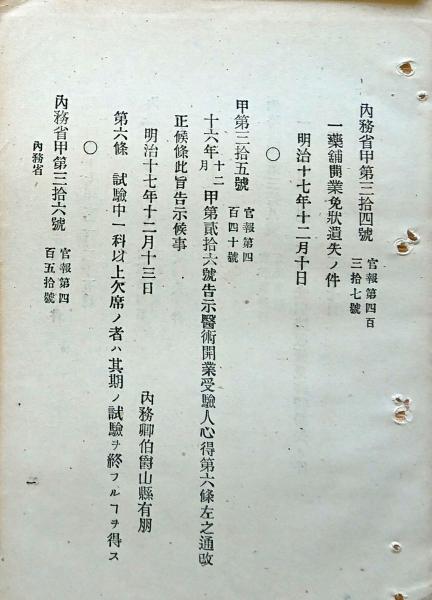 內務省甲第三拾四號 官報第四百三拾七號
一藥舖開業免狀遺失ノ件
明治十七年十二月十日
〇
甲第三拾五號 官報第四百四十號
十六年十二月甲第貳拾六號告示醫術開業受驗人心得第六條左之通改
正候條此旨告示候事
明治十七年十二月十三日
內務卿伯爵山縣有朋
第六條 試驗中一科以上欠席ノ者ハ其期ノ試驗ヲ終フルヿヲ得ス
〇
內務省甲第三拾六號 官報第四百五拾號
內務省
一